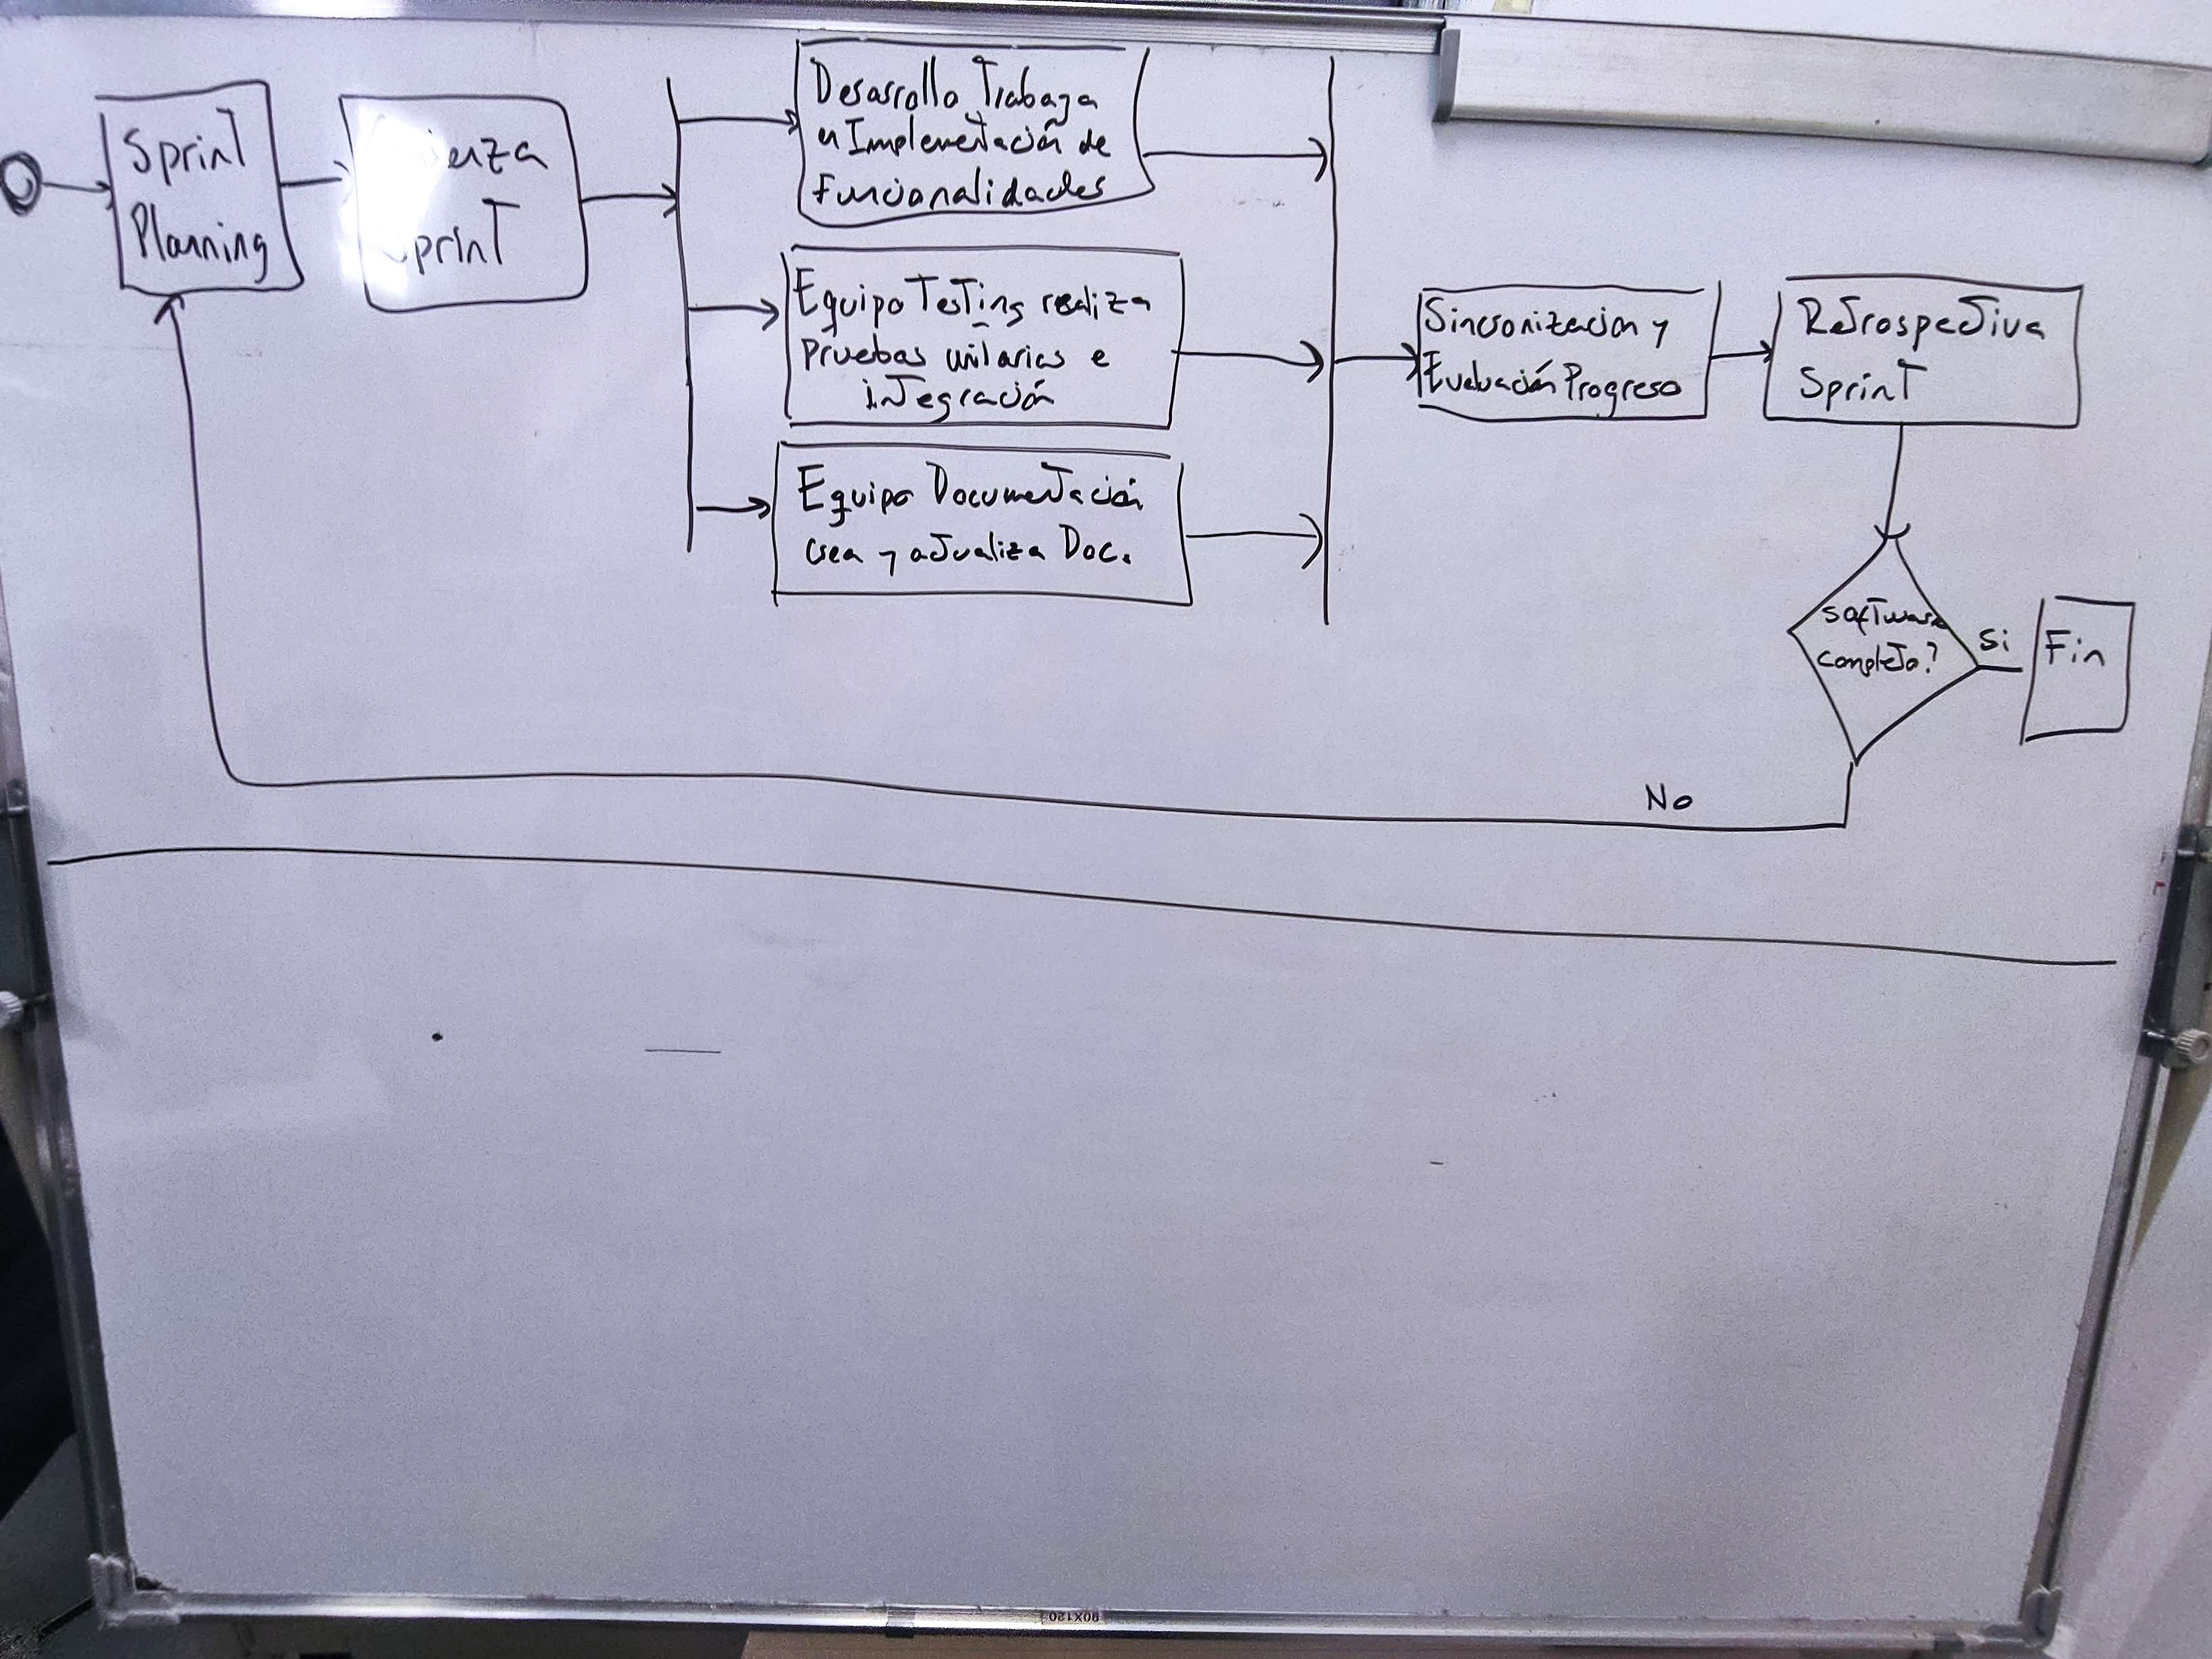 Sprint
Planning
Sprint
Desarrollo Trabaja
en Implementación de
Funcionalidades
Equipo Testing realiza
Pruebas unitarias e
integración
Equipo Documentación
crea y actualiza Doc.
Sincronizacion y
Evaluación Progreso
Retrospectiva
Sprint
software
completo?
Si
Fin
No
90X120